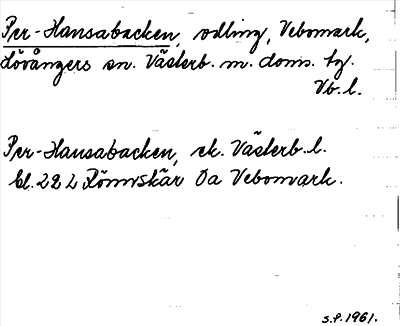 Per-Hansabacken, odling, Vebomark,
Lövångers sn. Västerb. m. doms. tg.
Vb. l.
Per-Hansabacken, ek. Västerb. l.
bl. 22 L Rönnskär Öa Vebomark.
s.f. 1961.